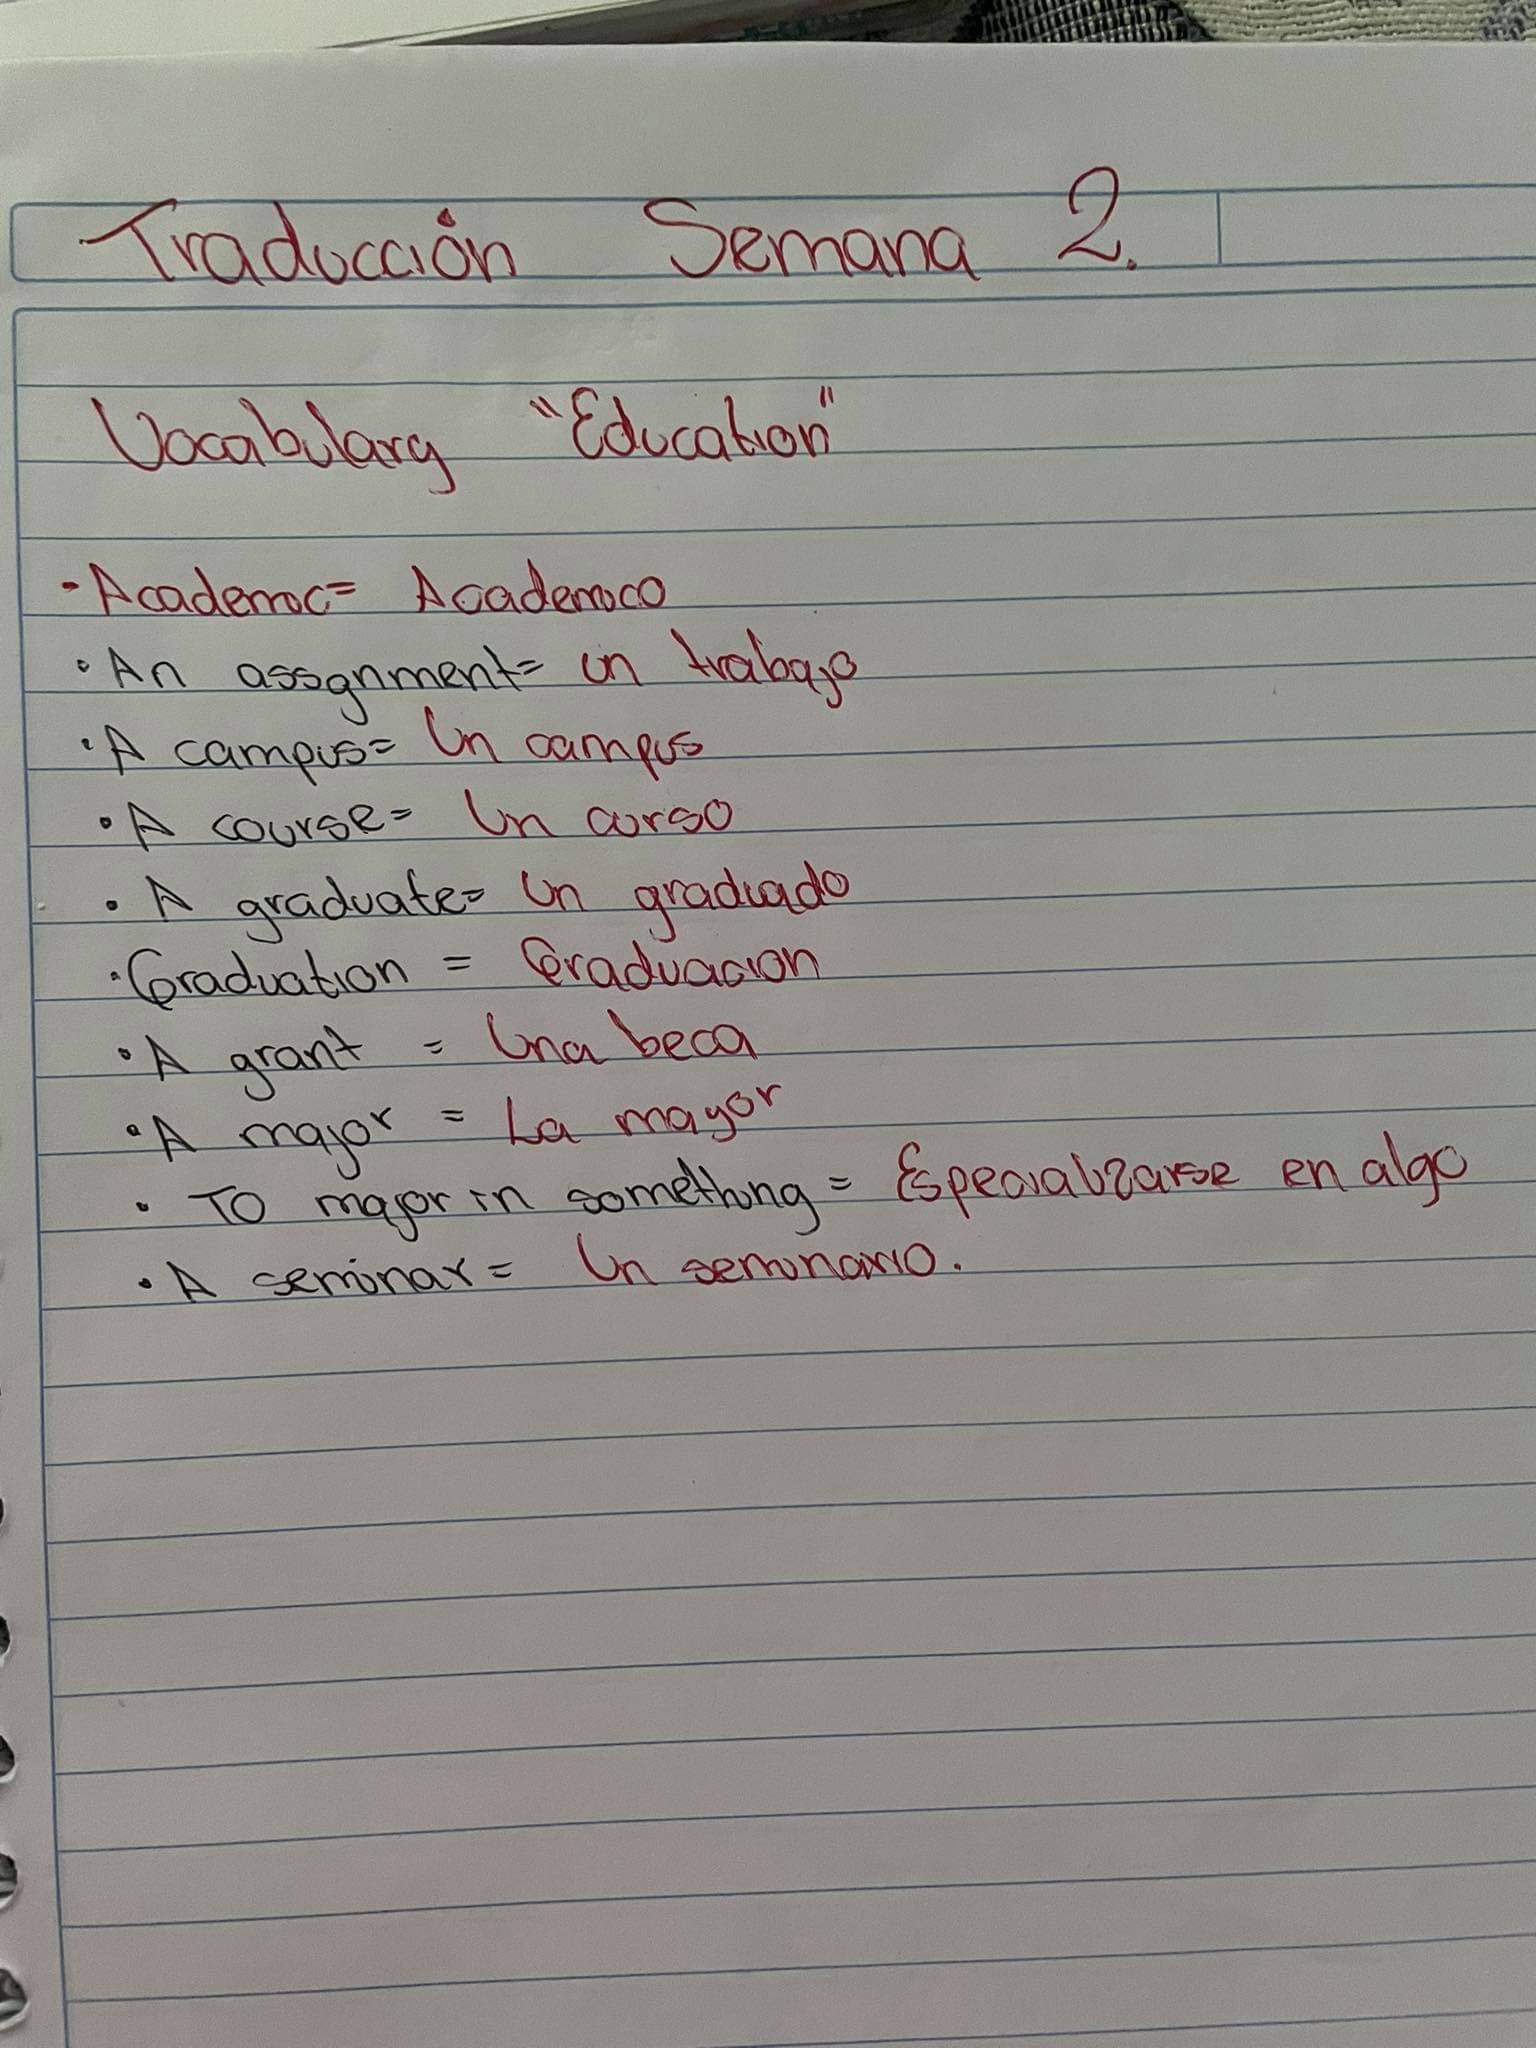 Traducción Semana 2.
Vocabulary "Education"
- Academic = Academico
• An assignment = un trabajo
• A campus = Un campus
• A course = Un curso
• A graduate = Un graduado
• Graduation = Graduacion
• A grant = Una beca
• A major = La mayor
• To major in something = Especializarse en algo
• A seminar = Un seminario.